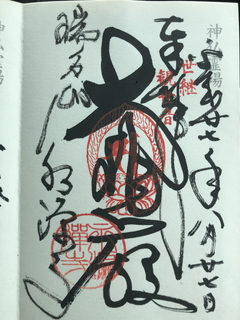 神仏霊場
平成廿七年八月廿七日
奉拝
世継
観世音
大悲殿
瑞石山 永源寺